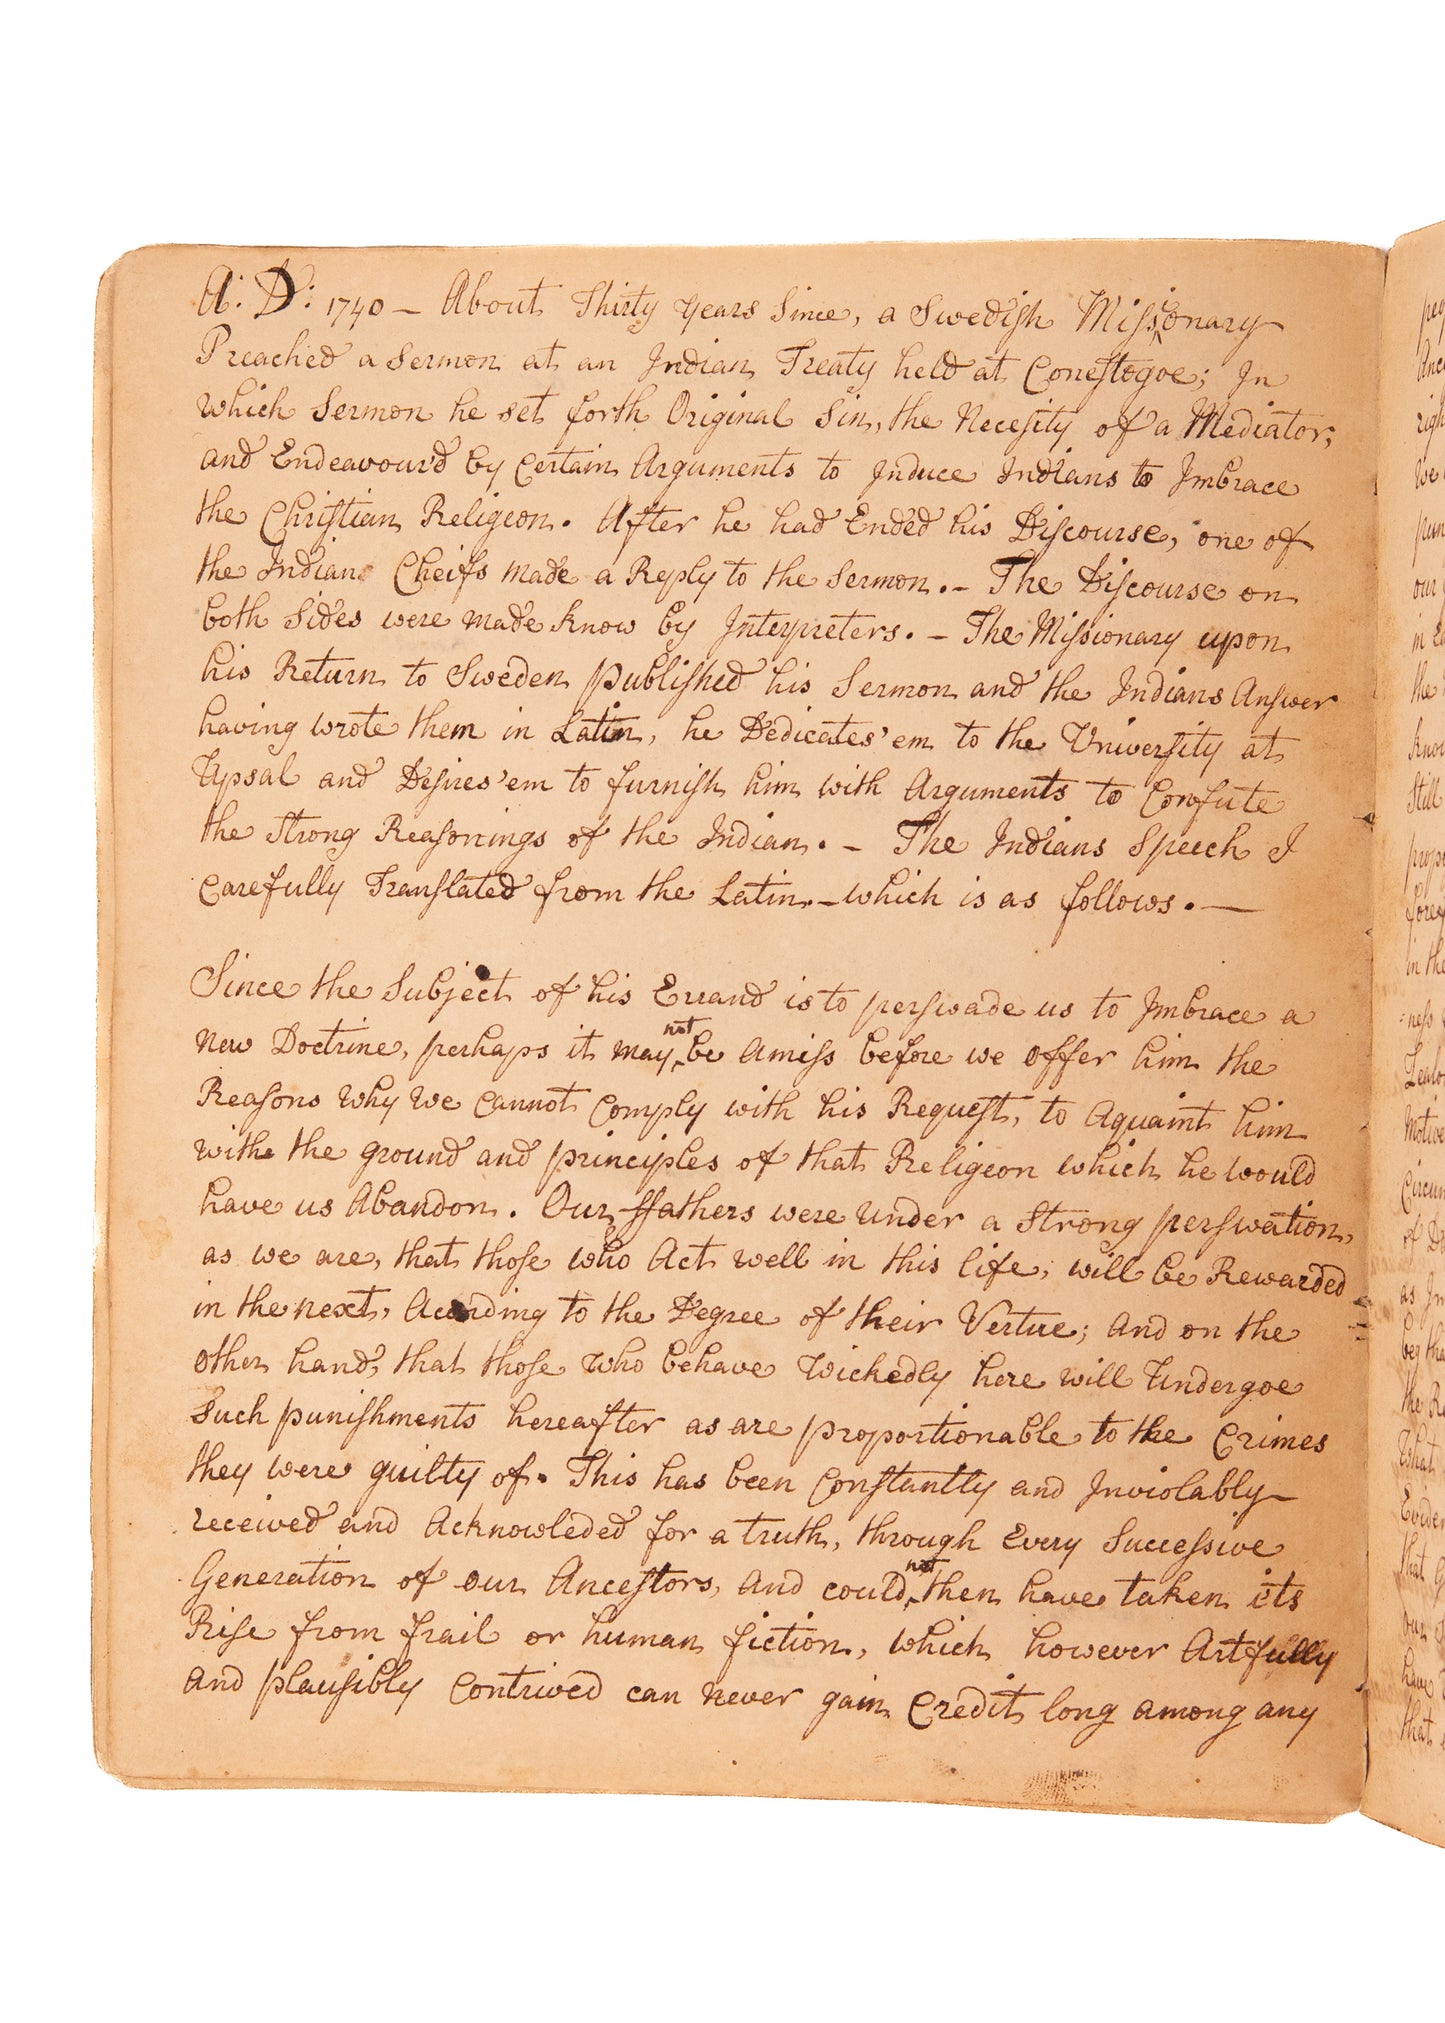 A: D: 1740 – About Thirty years Since, a Swedish Missionary
Preached a Sermon at an Indian Treaty held at Conestogoe; In
which Sermon he set forth Original Sin, the Necesity of a Mediator;
and Endeavour'd by Certain Arguments to Induce Indians to Imbrace
the Christian Religeon. After he had Ended his Discourse, one of
the Indian Cheifs made a Reply to the Sermon. – The Discourse on
both Sides were made know by Interpreters. – The Missionary upon
his Return to Sweden published his Sermon and the Indians Answer
having wrote them in Latin, he Dedicates 'em to the University at
Upsal and Desires 'em to furnish him with Arguments to Confute
the Strong Reasonings of the Indian. – The Indians Speech I
Carefully Translated from the Latin. – which is as follows. —
Since the Subject of his Errand is to perswade us to Imbrace a
New Doctrine, perhaps it may not be Amiss before we offer him the
Reasons why we Cannot Comply with his Request, to Aquaint him
with the ground and principles of that Religeon which he would
have us Abandon. Our ffathers were under a Strong perswation,
as we are, that those who Act well in this life, will be Rewarded
in the next, Acording to the Degree of their Vertue; and on the
other hand, that those who behave Wickedly here will Undergoe
Such punishments hereafter as are proportionable to the Crimes
they were guilty of. This has been Constantly and Inviolably
received and Acknowleded for a truth, through Every Successive
Generation of our Ancestors, and could not then have taken its
Rise from frail or human fiction, which however Artfully
and plausibly Contrived can never gain Credit long among any